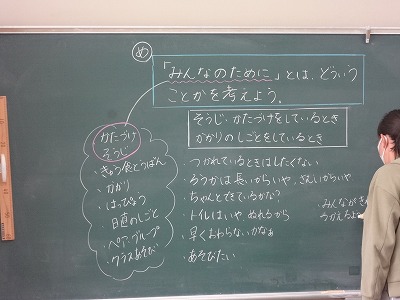 め
「みんなのために」とは、どういう
ことかを考えよう。
そうじ・かたづけをしているとき
かかりのしごとをしているとき
かたづけ
そうじ
・きゅう食とうばん
・かかり
・はっぴょう
・日直のしごと
・ペア、グループ
・クラスあそび
・つかれているときはしたくない
・ろうかは長いからいや、さむいからいや
・ちゃんとできているかな?
・トイレはいや、ぬれるから
・早くおわらないかなぁ
・あそびたい
・みんなが
つかえるよ